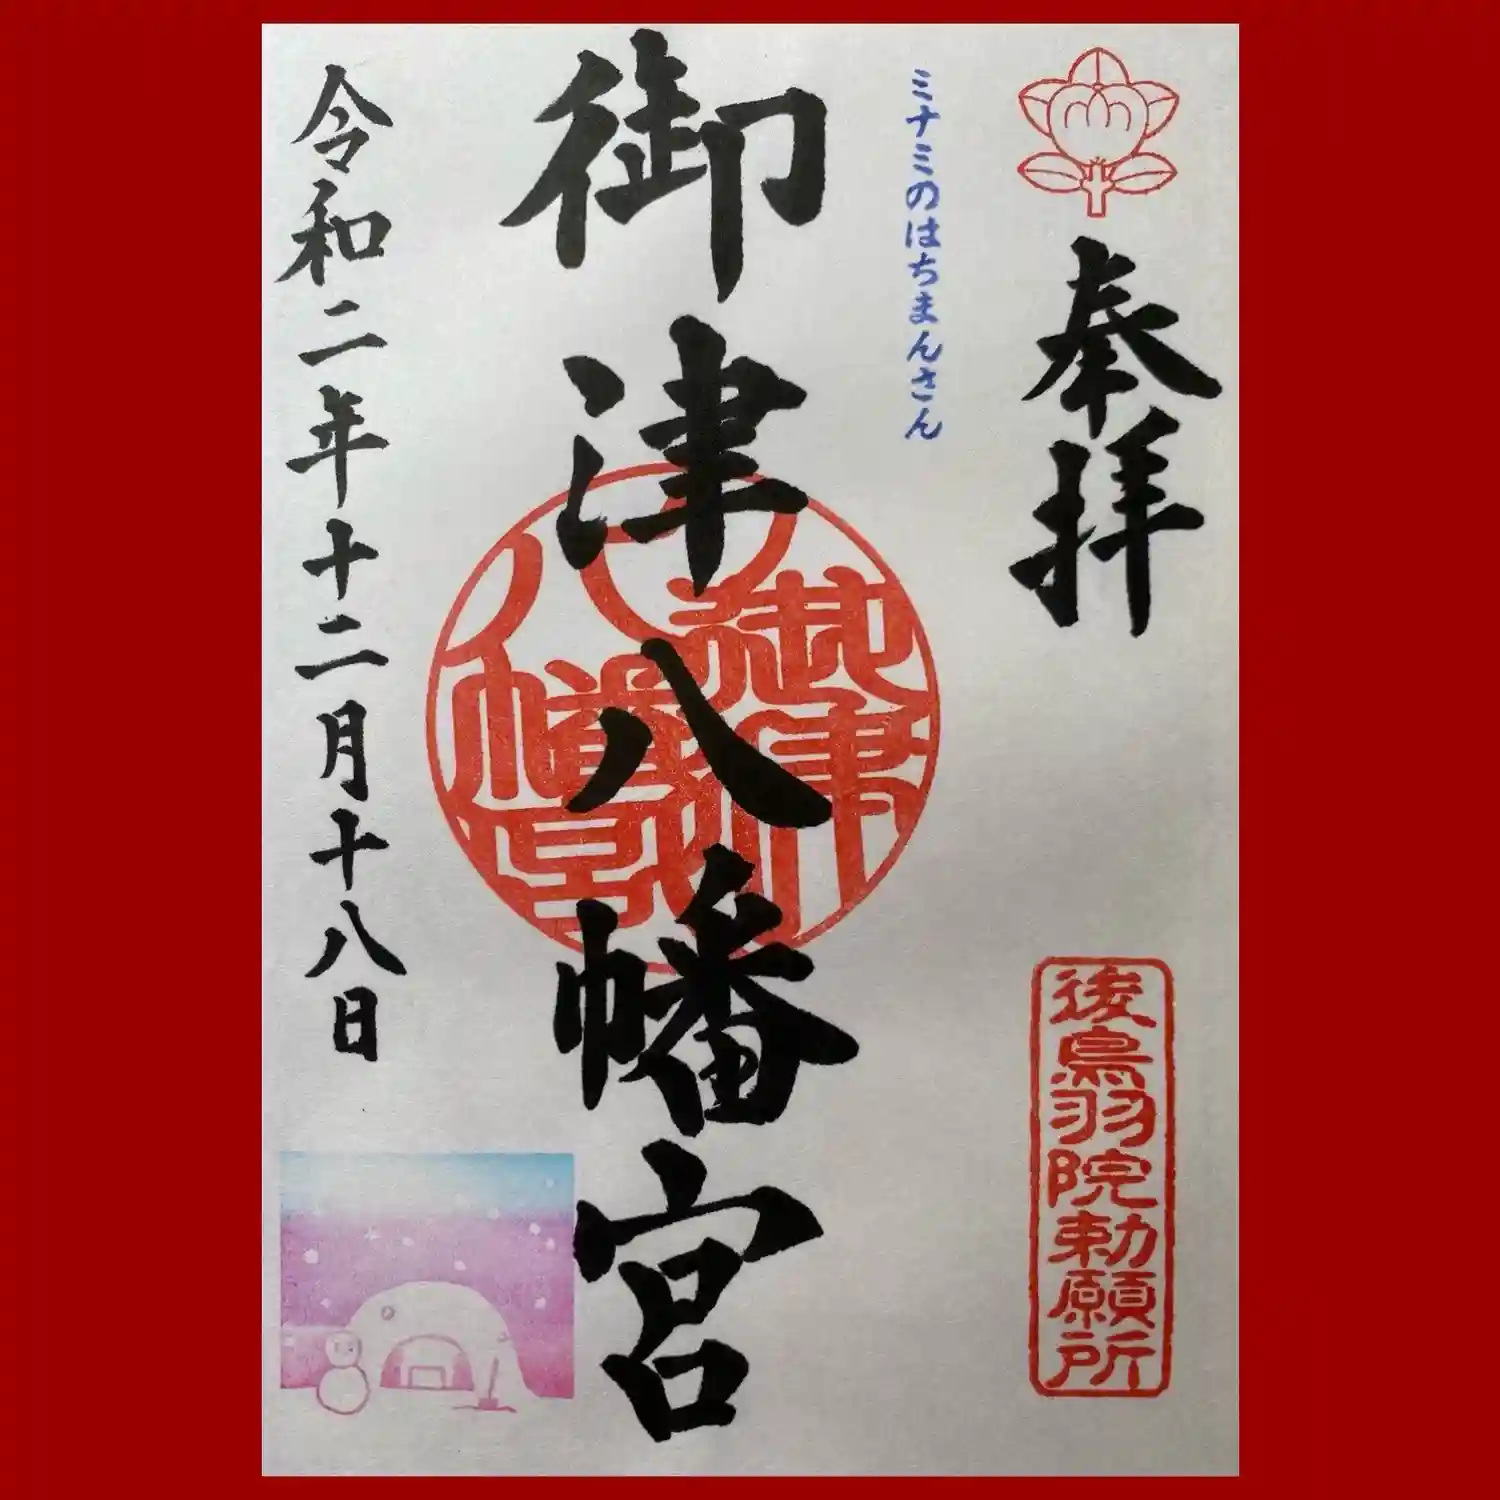 奉拝
後鳥羽院勅願所
ミナミのはちまんさん
御津八幡宮
御津八幡宮
令和二年十二月十八日